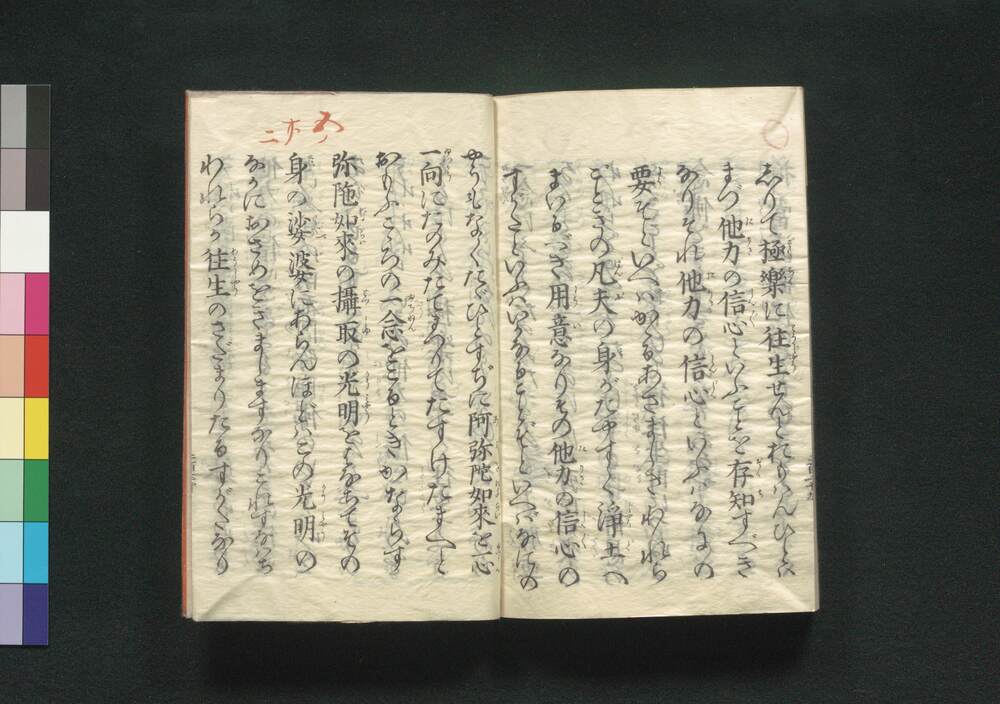 しりて極樂に往生せんとおもはんひとは
まづ他力の信心といふことを存知すべき
なりそれ他力の信心といふはなにの
要ぞといへはかゝるあさましきわれら
ごときの凡夫の身がたやすく浄土へ
まいるへき用意なりその他力の信心の
すかたといふはいかなることぞといへばなにの
やうもなくたゞひとすぢに阿弥陀如來を一心
一向にたのみたてまつりてたすけたまへと
おもふこゝろの一念をこるときかならす
弥陁如來の攝取の光明をはなちてその
身の娑婆にあらんほとはこの光明の
なかにおさめをきましますなりこれすなはち
われらが往生のさだまりたるすがたなり